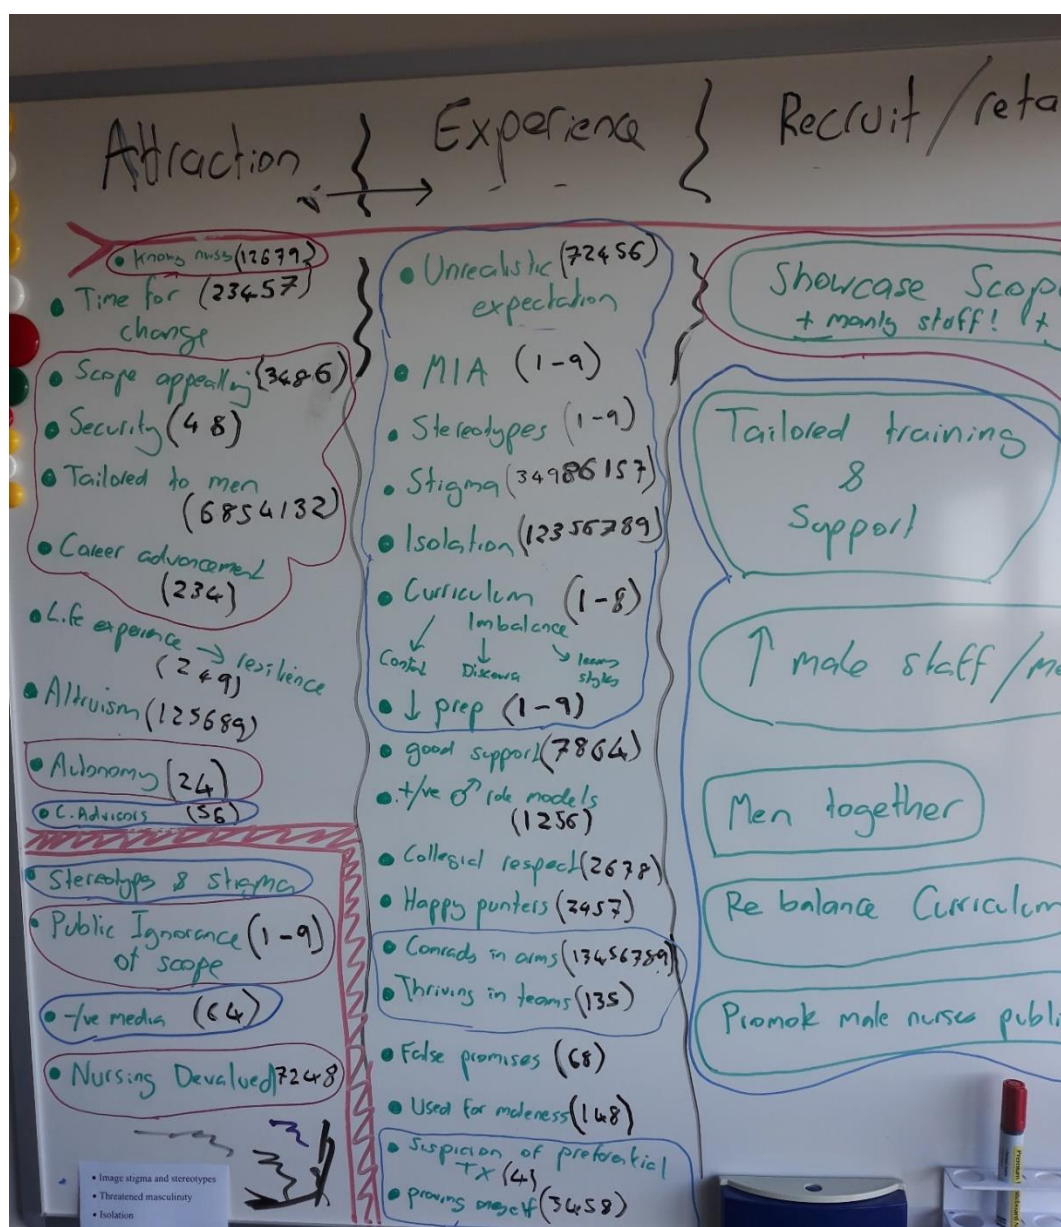 Attraction
• Knows nurses (12679)
• Time for (23457)
change
• Scope appealing (3486)
• Security (48)
• Tailored to men
(6854132)
• Career advancement
(234)
• Life experience → resilience
(249)
• Altruism (125689)
• Autonomy (24)
• C. Advisors (56)
• Stereotypes & stigma
• Public Ignorance (1-9)
of scope
• -/ve media (64)
• Nursing Devalued 7248
• Image stigma and stereotypes
• Threatened masculinity
• Isolation
Experience
• Unrealistic (72456)
expectation
• MIA (1-9)
• Stereotypes (1-9)
• Stigma (34986157)
• Isolation (12356789)
• Curriculum (1-8)
Imbalance
Discourse
learn
styles
• ↓ prep (1-9)
• good support (7864)
• +/ve ♂ role models
(1256)
• Collegial respect (2678)
• Happy punters (2457)
• Conrads in arms (13456789)
• Thriving in teams (135)
• False promises (68)
• Used for maleness (148)
• Suspicion of preferential
TX (4)
• proving oneself (3458)
Recruit/reta
Showcase Scop
+ manly staff! +
Tailored training
&
Support
↑ male staff/m
Men together
Re balance Curriculum
Promote male nurses publi